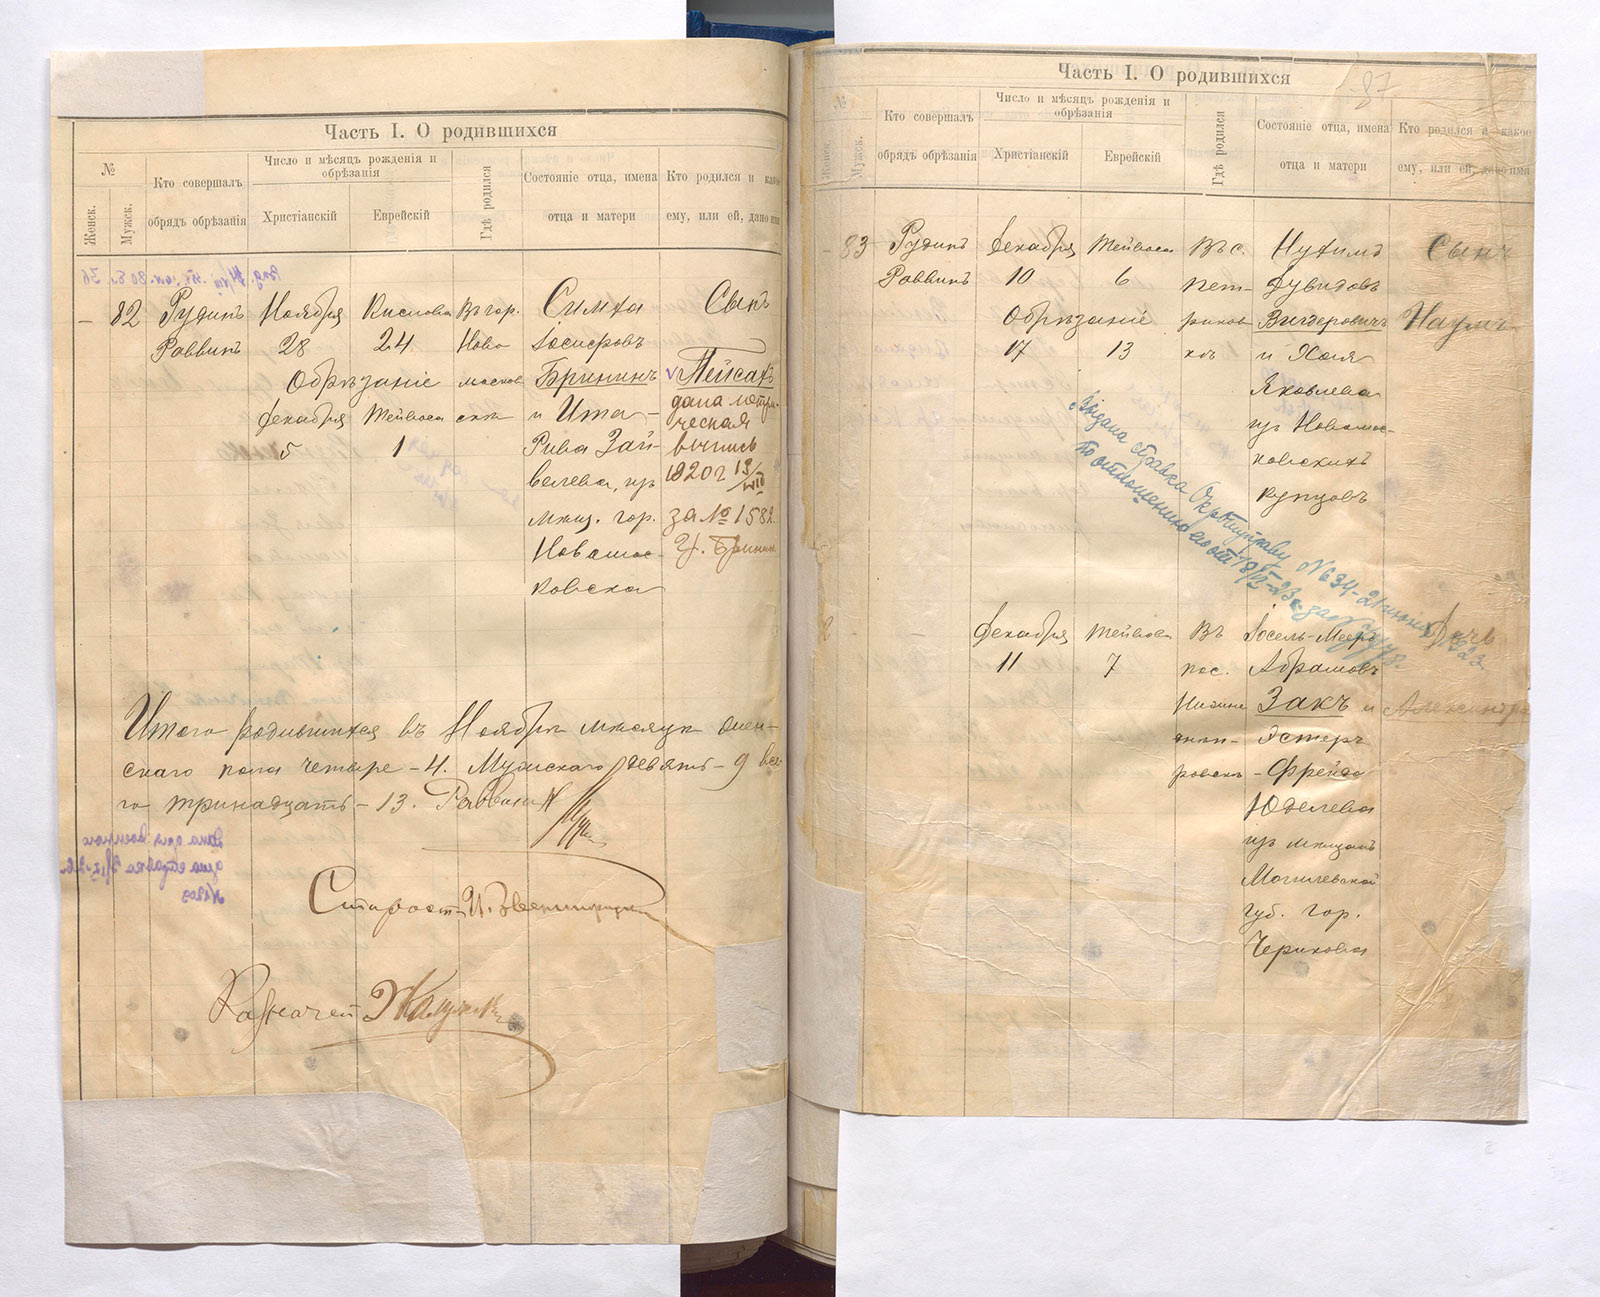 Часть I. О родившихся
№
Женск.
Мужск.
Кто совершалъ
обрядъ обрѣзанія
Число и мѣсяцъ рожденія и
обрѣзанія
Христіанскій
Еврейскій
Гдѣ родился
Состояніе отца, имена
отца и матери
Кто родился и какое
ему, или ей, дано имя
– 82
Рудинъ
Раввинъ
Ноября
28
Кислова
24
Обрѣзаніе
Декабря
5
Тейвоса
1
Въ гор.
Ново
москов
скѣ
Симха
Іосифовъ
Брининъ
и Ита-
Рива Зай-
велева, изъ
мѣщ. гор.
Новомос-
ковска
Сынъ
Пейсахъ
дана метри-
ческая
выпись
за № 1582
Итого родившихся въ Ноябрѣ мѣсяцѣ жен-
скаго пола четыре – 4. Мужскаго девять – 9 все-
го тринадцать – 13. Раввинъ
Староста
Казначей
Часть I. О родившихся
87
№
Женск.
Мужск.
Кто совершалъ
обрядъ обрѣзанія
Число и мѣсяцъ рожденія и
обрѣзанія
Христіанскій
Еврейскій
Гдѣ родился
Состояніе отца, имена
отца и матери
Кто родился и какое
ему, или ей, дано имя
– 83
Рудинъ
Раввинъ
Декабря
10
Тейвоса
6
Обрѣзаніе
17
13
Въ с.
Пет-
риков
кѣ
Нухимъ
Дувидовъ
Вигдеровичъ
и Хая
Яковлева
изъ Новомос-
ковскихъ
купцовъ
Сынъ
Наумъ
Выдана справка
по отношению
Декабря
11
Тейвоса
7
Въ
пос.
Нижне
днѣп-
ровскъ
Іосель-Мееръ
Абрамовъ
Закъ и
Эстеръ
-Фрейда
Юделева
изъ мѣщанъ
Могилевской
губ. гор.
Черикова
Дочь
Александра